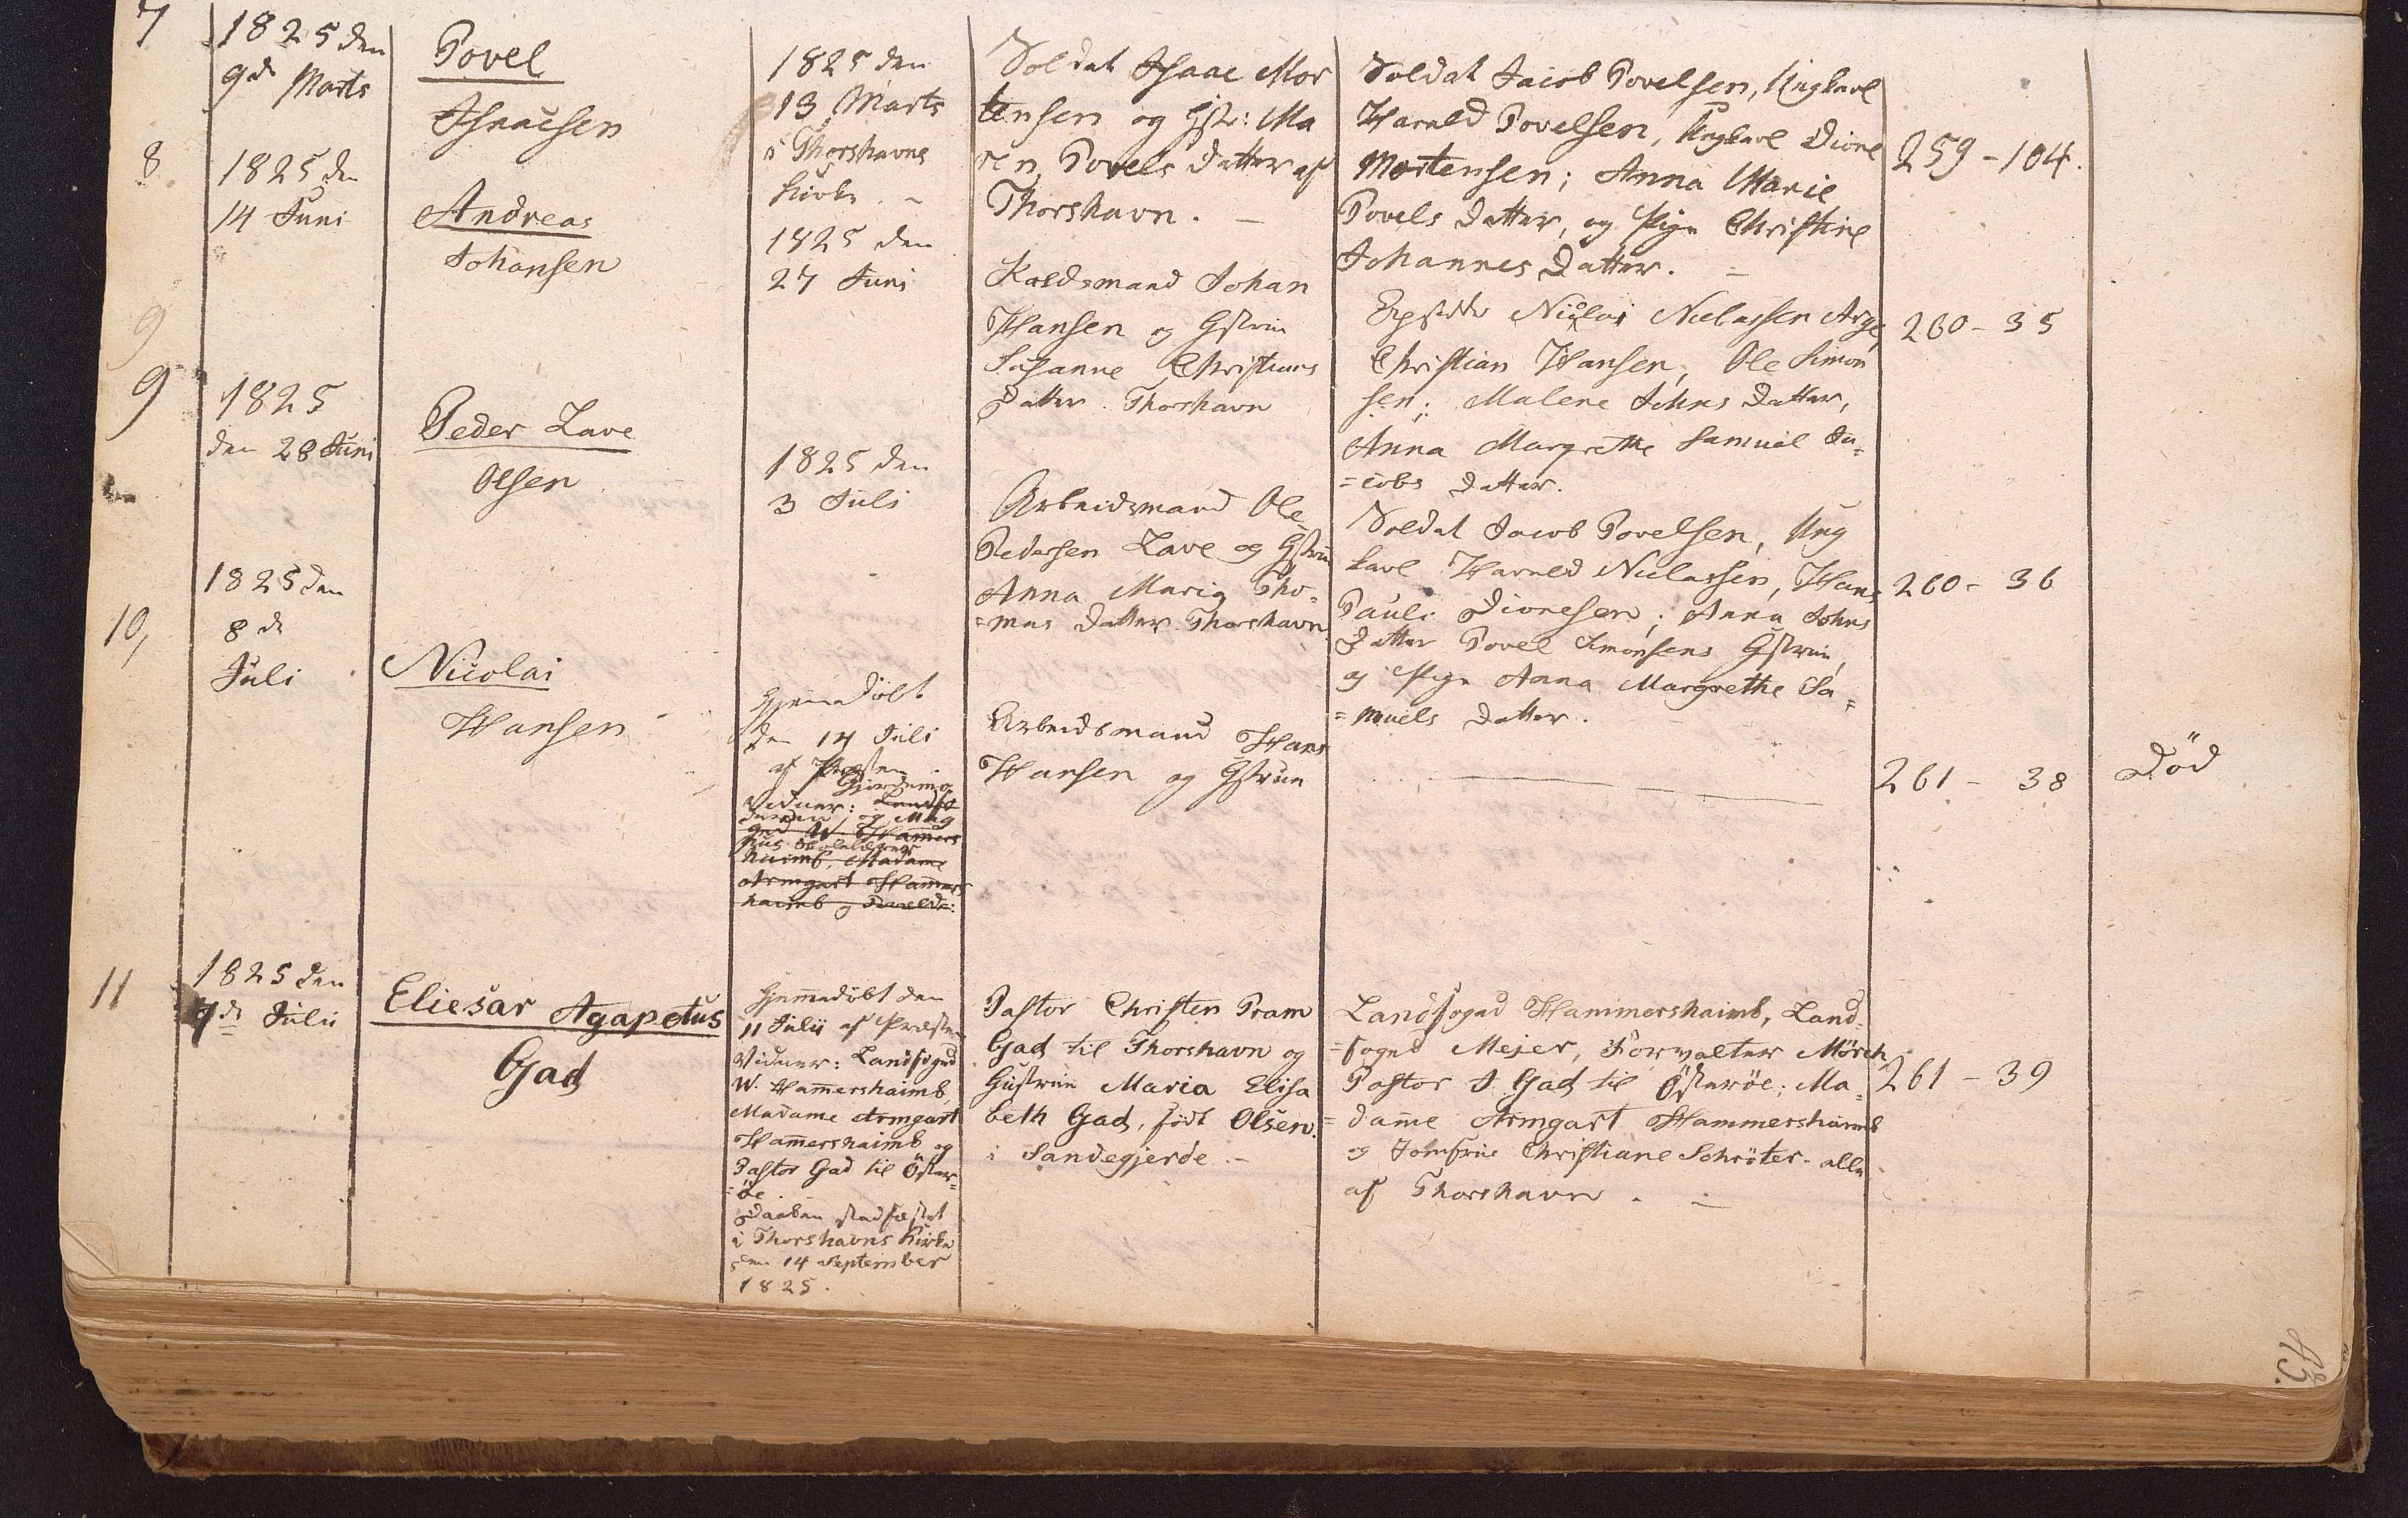 7
1825 den
9de Marts
Povel
Isaacsen
1825 den
13 Marts
i Thorshavns
Kirke. -
Soldat Isaac Mor
tensen og Hstr: Ma
ren Povels Datter af
Thorshavn. -
Soldat Jacob Povelsen, Ungkarl
Harald Povelsen, Ungkarl Dione
Mortensen; Anna Marie
Povels Datter, og Pige Christine
Johannes Datter. -
259 - 104.
8
1825 den
14 Juni
Andreas
Johansen
1825 den
27 Juni
Johan
Hansen og Gstrue
Susanne Christians
Datter. Thorshavn
Nicolai Niclassen Arge,
Christian Hansen, Ole Simon
sen; Malene Johns Datter,
Anna Margrethe Samuel Ja=
=cobs Datter.
260 - 35
9
9
1825
den 28 Juni
Peder Lave
Olsen
1825 den
3 Juli
Arbeidsmand Ole
Pedersen Lave og Gstrue
Anna Maria Tho=
=mas Datter. Thorshavn
Soldat Jacob Povelsen, Ung
karl Harald Niclassen, Hans
Pauli Dionesen; Anna Johns
Datter Povel Simonsens Gstrue,
og Pige Anna Margrethe Sa=
=muels Datter.
260 - 36
10,
1825 den
8 de
Juli
Nicolai
Hansen
Hjemmedöbt
den 14 Juli
af Præsten
Vidner:
og Mag
W. Hammers
haimb, Madame
Armgart Hammers
haimb og
Arbeidsmand Hans
Hansen og Gstrue
261 - 38
Död
11
1825 den
7de Julii
Eliesar Agapetus
Gad
Hjemmedöbt den
11 Julii af Præsten
Vidner: Landfoged
W. Hammershaimb,
Madame Armgart
Hammershaimb og
Pastor Gad til Öster=
=öe.
Daaben stadfæstet
i Thorshavns Kirke
den 14 September
1825.
Pastor Christen Pram
Gad til Thorshavn og
Hustrue Maria Elisa
beth Gad, född Olsen.
i Sandegjerde. -
Landfoged Hammershaimb, Land=
=foged Mejer, Forvalter Mörch,
Pastor J. Gad til Österöe; Ma=
=dame Armgart Hammershaimb
og Jomfrue Christiane Schröter - alle
af Thorshavn. -
261 - 39
43.